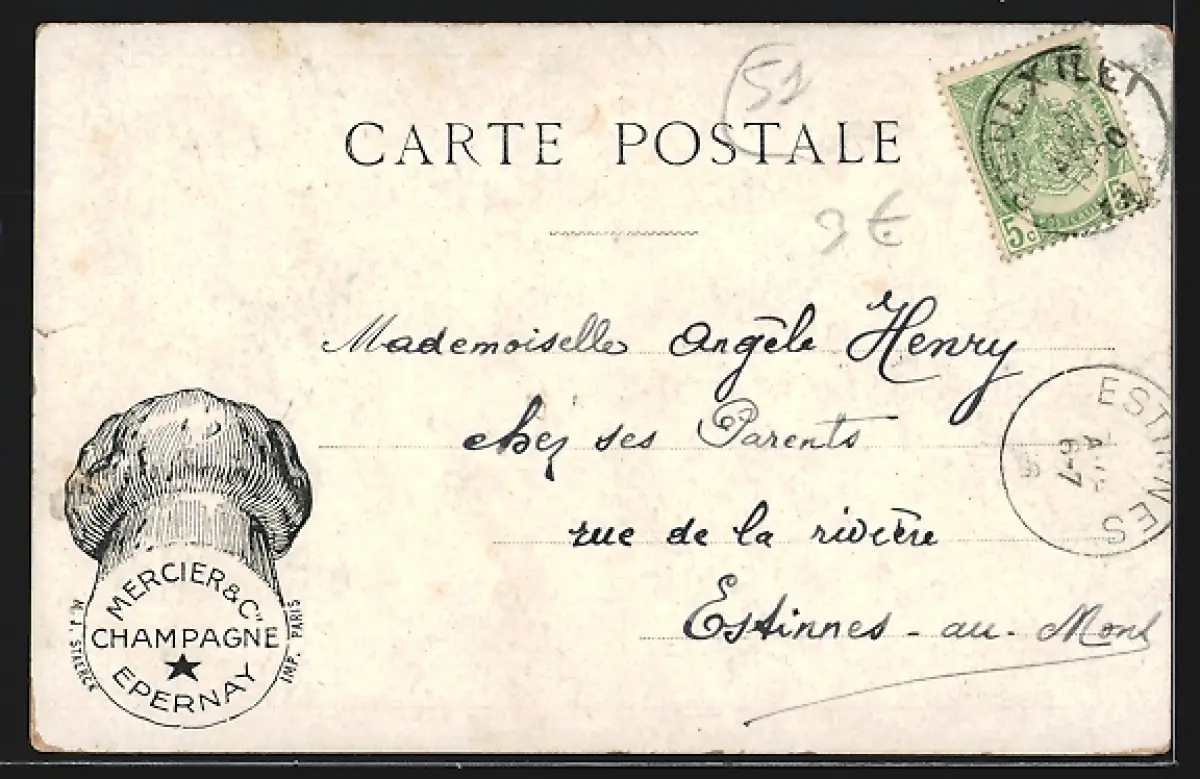 51
CARTE POSTALE
5c
9 €
Mademoiselle Angèle Henry
chez ses Parents
rue de la rivière
Estinnes - au - Mont
ESTINNES
6-7
MERCIER & Cie
CHAMPAGNE
EPERNAY
STAERCK
IMP. PARIS